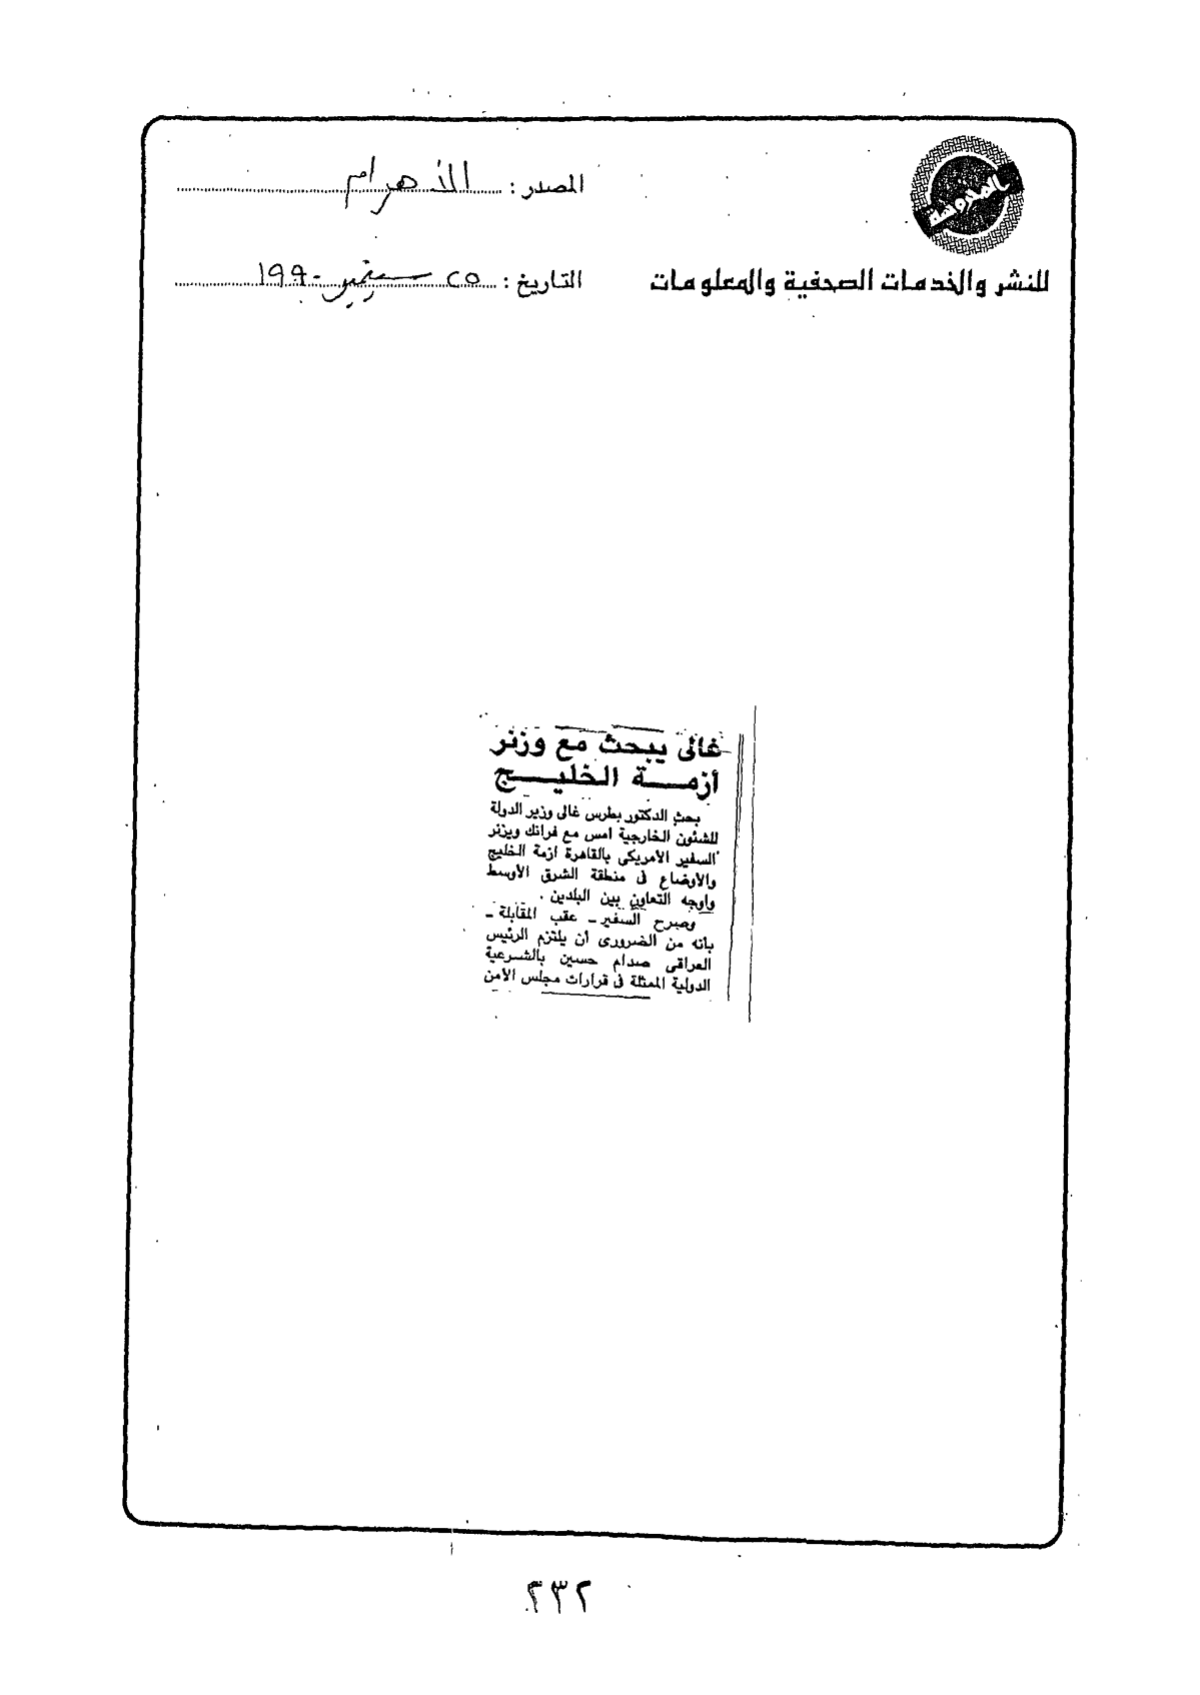 المحروسة
للنشر والخدمات الصحفية والمعلومات
المصدر : الأهرام
التاريخ : ٢٥ سبتمبر ١٩٩٠
غالى يبحث مع وزنر
أزمـــة الخليـــج
بحث الدكتور بطرس غالى وزير الدولة
للشئون الخارجية امس مع فرانك ويزنر
السفير الأمريكى بالقاهرة ازمة الخليج
والأوضاع فى منطقة الشرق الأوسط
واوجه التعاون بين البلدين .
وصرح السفير ـ عقب المقابلة ـ
بانه من الضرورى أن يلتزم الرئيس
العراقى صدام حسين بالشرعية
الدولية الممثلة فى قرارات مجلس الأمن
٢٣٢